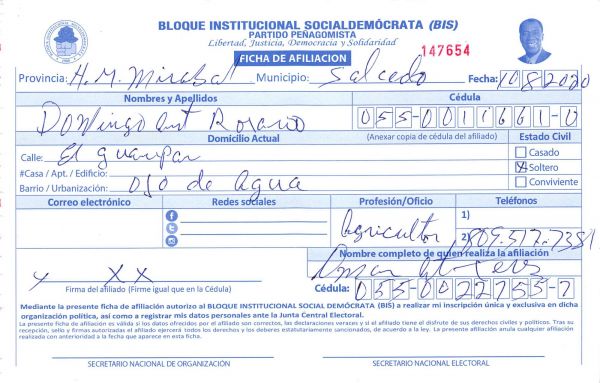 BLOQUE INSTITUCIONAL SOCIALDEMÓCRATA (BIS)
PARTIDO PEÑAGOMISTA
Libertad, Justicia, Democracia y Solidaridad
147654
FICHA DE AFILIACION
Provincia: H.M. Mirabal Municipio: Salcedo Fecha: 1082020
Nombres y Apellidos Cédula
Domingo Ant Rosario 055-0011661-0
Domicilio Actual (Anexar copia de cédula del afiliado) Estado Civil
Calle: El guanpan Casado
#Casa / Apt. / Edificio: X Soltero
Barrio / Urbanización: Ojo de Agua Conviviente
Correo electrónico Redes sociales Profesión/Oficio Teléfonos
Agricultor 1)
2) 809.517.7381
Nombre completo de quien realiza la afiliación
y XX Omar
Firma del afiliado (Firme igual que en la Cédula) Cédula: 055-0022755-7
Mediante la presente ficha de afiliación autorizo al BLOQUE INSTITUCIONAL SOCIAL DEMÓCRATA (BIS) a realizar mi inscripción única y exclusiva en dicha
organización política, así como a registrar mis datos personales ante la Junta Central Electoral.
La presente ficha de afiliación es válida si los datos ofrecidos por el afiliado son correctos, las declaraciones veraces y si el afiliado tiene el disfrute de sus derechos civiles y políticos. Tras su
recepción, sello y firmas autorizadas el afiliado ejercerá todos los derechos y los deberes estatutariamente sancionados, de acuerdo a la ley. La presente afiliación anula cualquier afiliación
realizada con anterioridad a la fecha que aparece en esta ficha.
SECRETARIO NACIONAL DE ORGANIZACIÓN SECRETARIO NACIONAL ELECTORAL